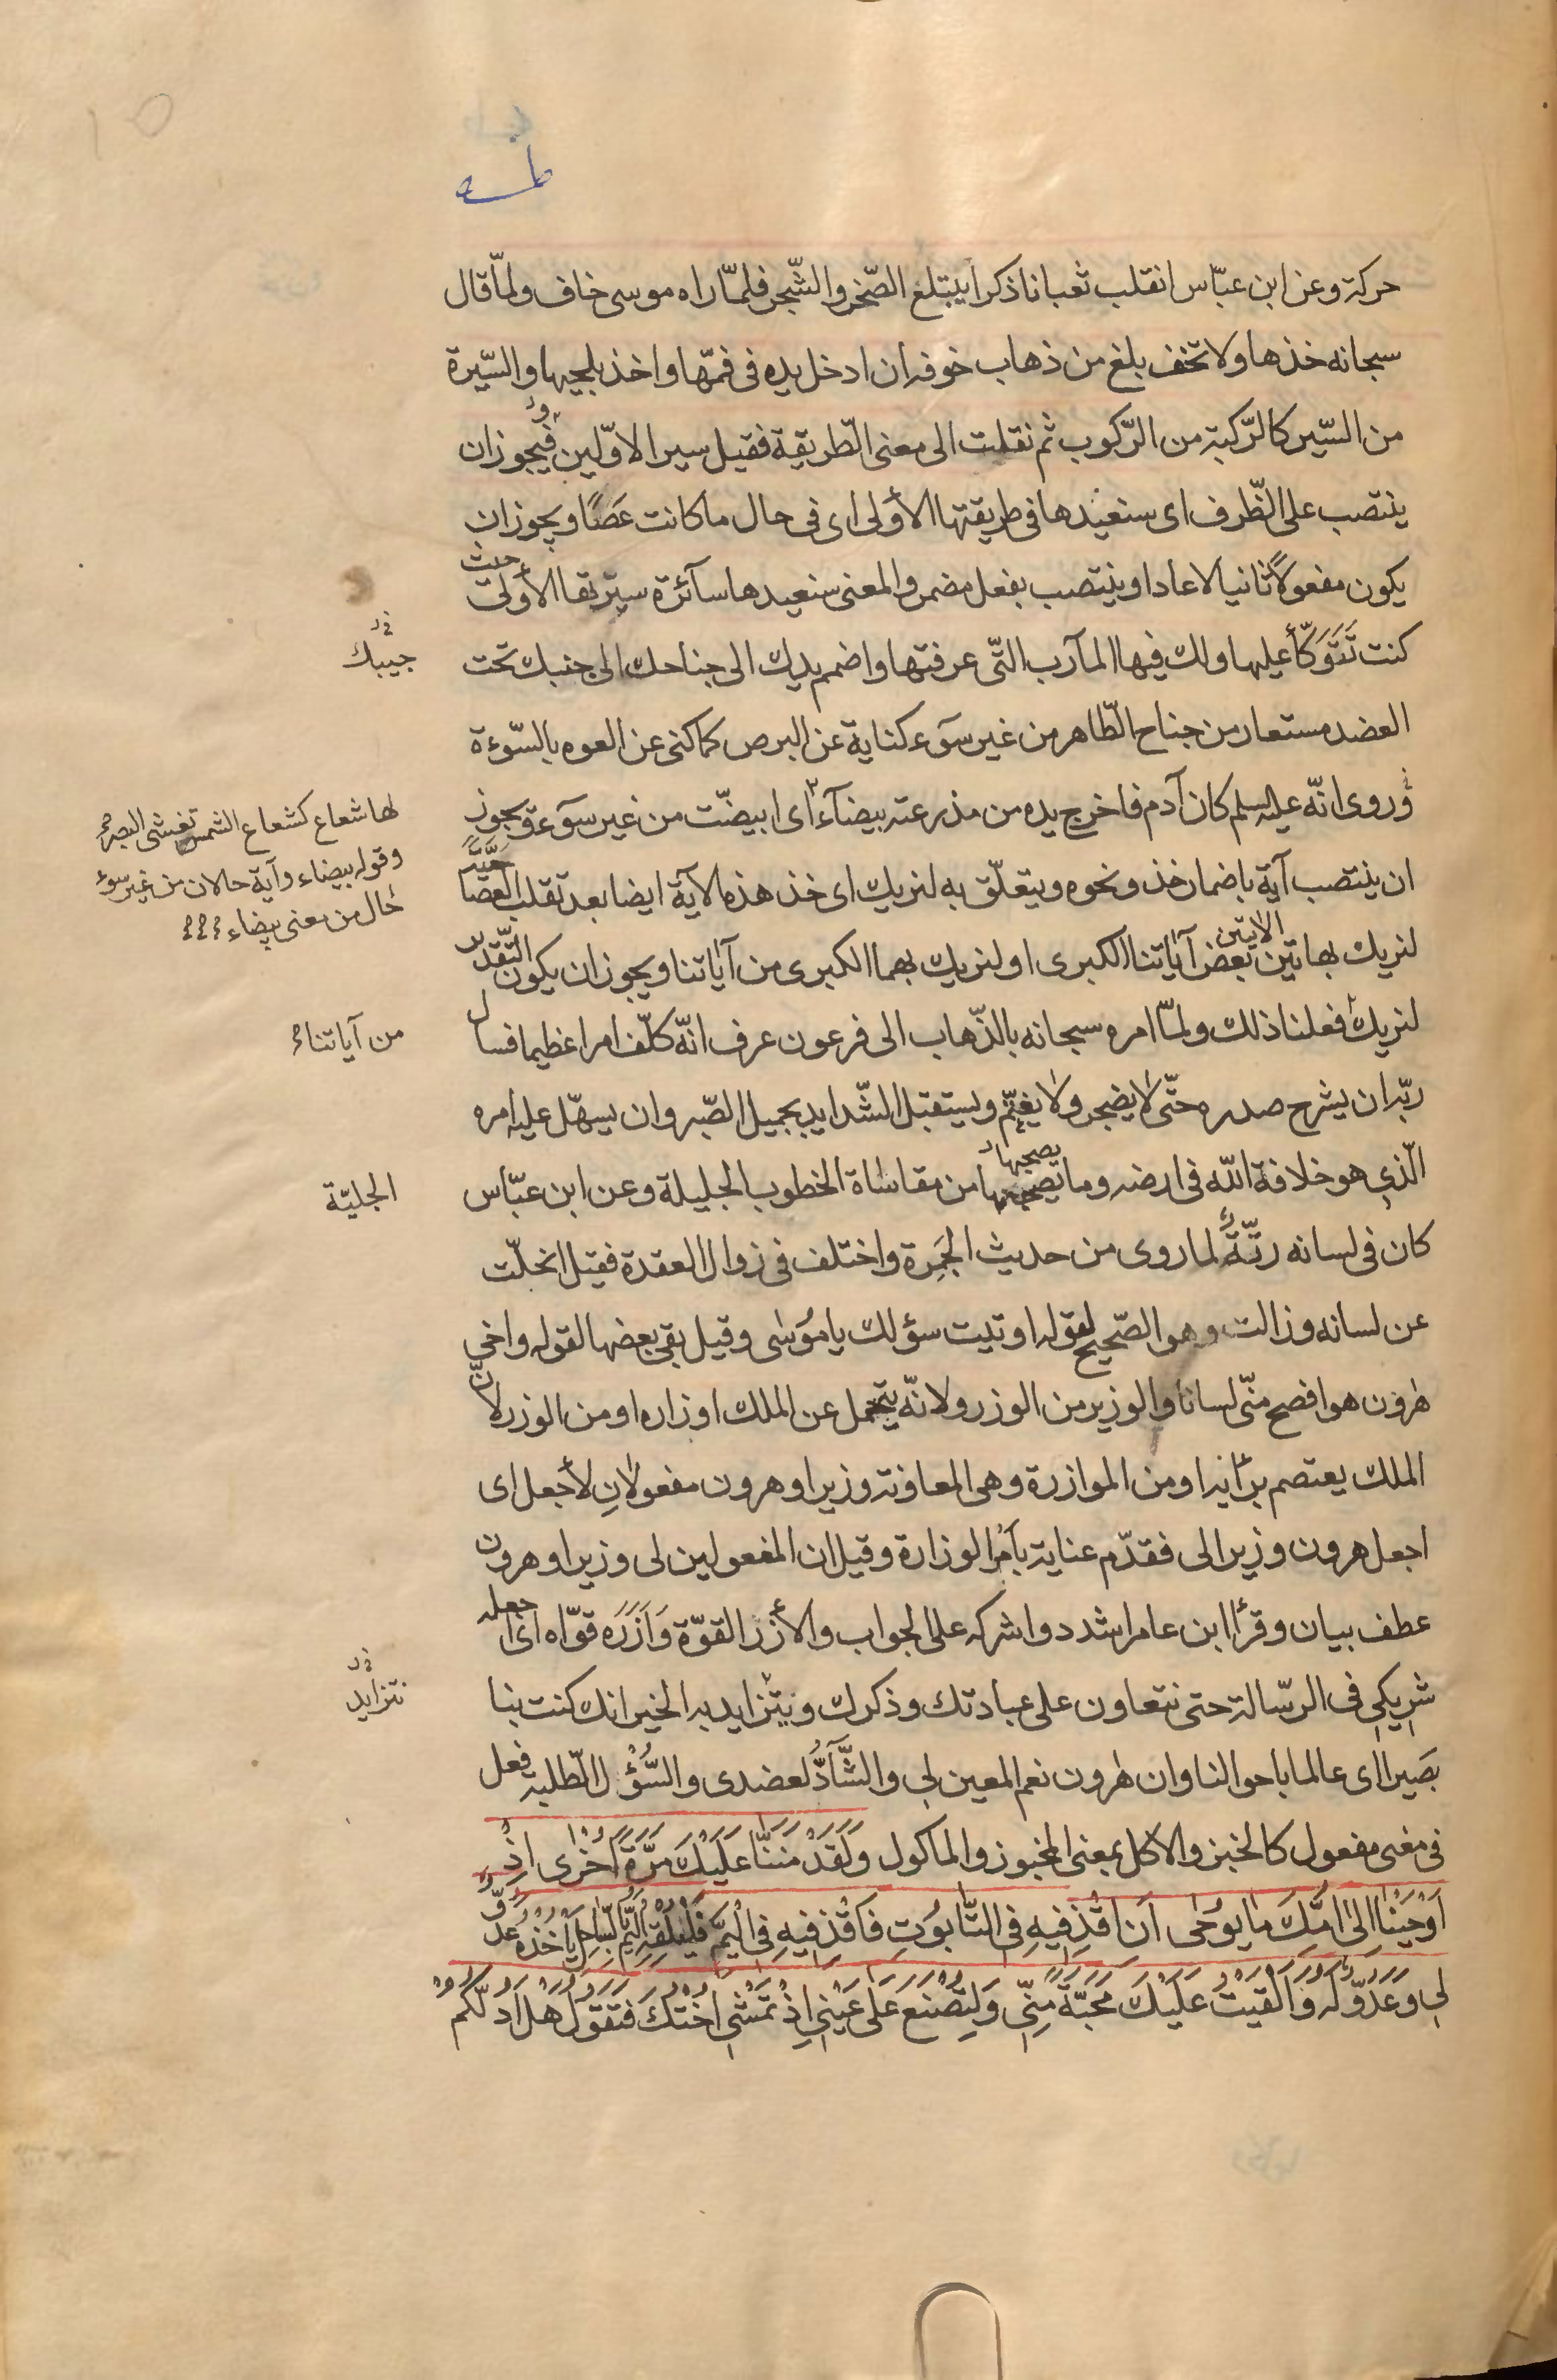 حركة وعن ابن عبّاس انقلب ثعبانا ذكرا يبتلع الصّخر والشّجر فلمّا راه موسى خاف ولمّا قال
سبحانه خذها ولا تخف بلغ من ذهاب خوفه ان ادخل يده فى فمّها واخذ بلحييها والسّيرة
من السّير كالرّكبة من الرّكوب ثم نقلت الى معنى الطّريقة فقيل سير الاوّلين فيجوز ان
ينتصب على الظّرف اى سنعيدها فى طريقتها الأولى اى فى حال ما كانت عَصًا ويجوز ان
يكون مفعولاً ثانيا لاعادا وينتصب بفعل مضمر والمعنى سنعيدها سآئرة سيرتها الأولى حيث
كنت تَتَوَكّأ عليها ولك فيها المآرب التّى عرفتها واضمم يدك الى جناحك الى جنبك تحت
جيبك
العضد مستعار من جناح الطّاهر من غير سوٓء كناية عن البرص كما كنى عن العوره بالسّوءة
وروى انّه عليه السلم كان آدم فاخرج يده من مذرعته بيضآء اى ابيضّت من غير سوٓء ويجوز
لها شعاع كشعاع الشمس تغشى البصر
ان ينتصب آية باضمار خذ ونحوه ويتعلّق به لنريك اى خذ هذه الآية ايضا بعد تقلب العصا حيّة
وقوله بيضاء وآية حالان من غير سوء
حال من معنى بيضاء
لنريك بهاتين الايتين بعض آياتنا الكبرى او لنريك بهما الكبرى من آياتنا ويجوز ان يكون التّقدير
لنريك فعلنا ذلك ولمّا امره سبحانه بالذّهاب الى فرعون عرف انّه كلّف امرا عظيما فسال
من آياتنا
ربّه ان يشرح صدره حتّى لا يضجر ولا يغتمّ ويستقبل الشّدايد بجميل الصّبر وان يسهّل عليه امره
الّذى هو خلافة اللّه فى ارضه وما يصحبها من مقاساة الخطوب الجليلة وعن ابن عبّاس
الجليّة
كان فى لسانه رتّةٌ لما روى من حديث الجَمرة واختلف فى زوال العقدة فقيل انحلّت
عن لسانه وزالت وهو الصّحيح لقوله اوتيت سؤلك يا موسى وقيل بقى بعضها لقوله واخى
هرون هو افصح منّى لسانا والوزير من الوزر ولانّه يتحمل عن الملك اوزاره او من الوزر لانّ
الملك يعتصم برائيه او من الموازرة وهى المعاونة وزيرا وهرون مفعولانِ لأجعل اى
اجعل هرون وزيرا لى فقدّم عناية بأمر الوزارة وقيل ان المفعولين لى وزيرا وهرون
عطف بيان وقرأ ابن عامر اشدد واشركه على الجواب والأزر القوّة وَآزَرَه قوّاه اى اجعله
شريكى فى الرسالة حتى نتعاون على عبادتك وذكرك ويتزايد به الخير انك كنت بنا
نتزايد
بَصيرا اى عالما باحوالنا وان هرون نعم المعين لى والشّآدّ لعضدى والسُّؤل الطّلبة فعل
فى معنى مفعول كالخبز والاكل بمعنى المخبوز والماكول وَلَقَدْ مَنَنَّا عَلَيْكَ مَرَّةً اُخْرٰى اِذْ
اَوْحَيْنَا اِلىٰ اُمِّكَ مَا يُوحٰى اَنِ اقْذِفيهِ فِى التَّابُوتِ فَاقْذِفيهِ فِى الْيَمِّ فَلْيُلْقِهِ الْيَمُّ بِالسَّاحِلِ يَأْخُذْهُ عَدُوٌّ
لِى وَعَدُوٌّ لَهُ وَاَلْقَيْتُ عَلَيْكَ مَحَبَّةً مِنِّى وَلِتُصْنَعَ عَلٰى عَيْنى اِذْ تَمْشى اُخْتُكَ فَتَقُولُ هَلْ اَدُلُّكُمْ